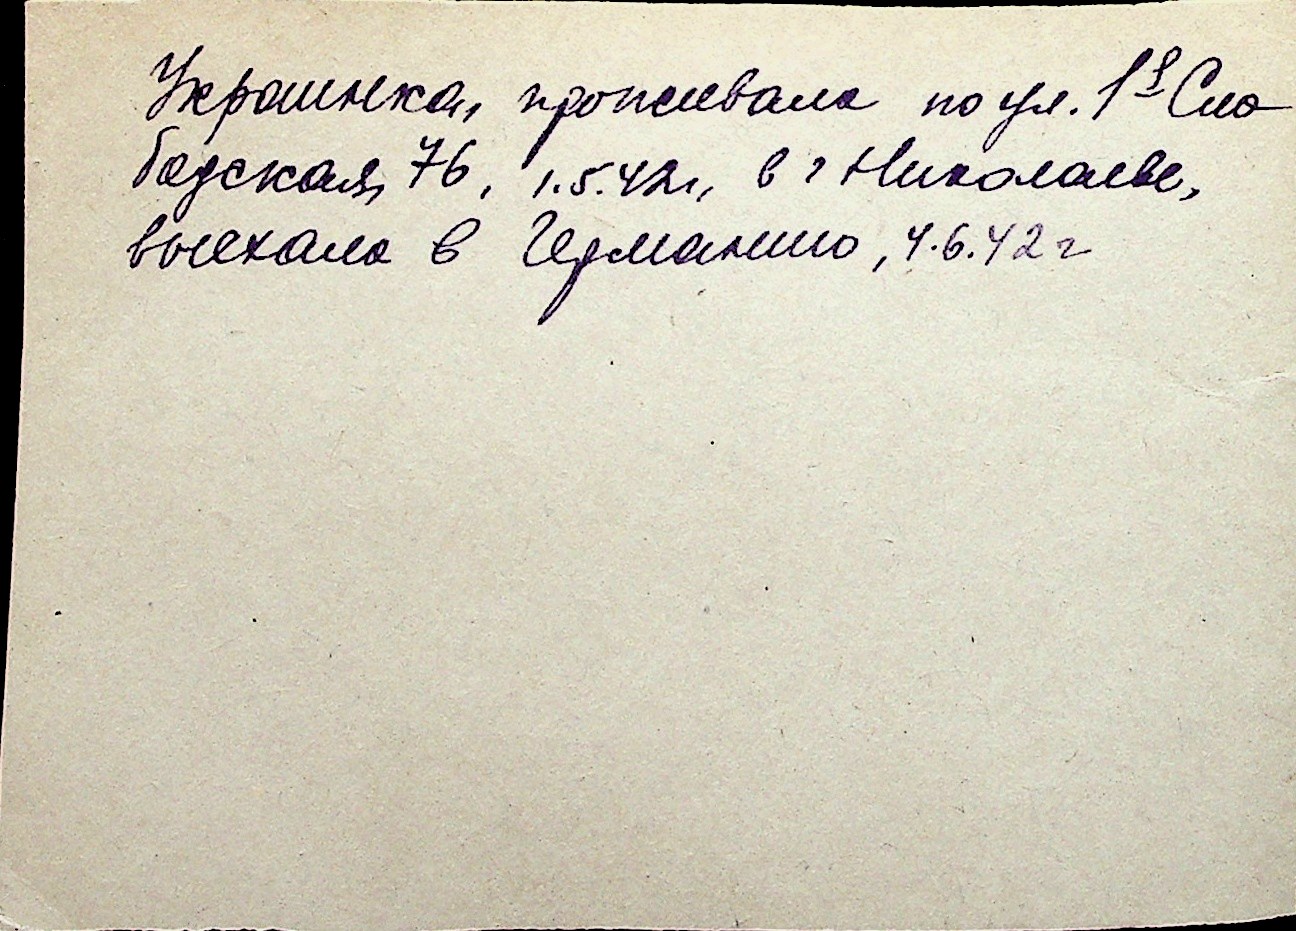 Украинка, проживала по ул. 1я Сло
бодская, 76, 1.5.42г, в г Николаеве,
выехала в Германию, 4.6.42 г